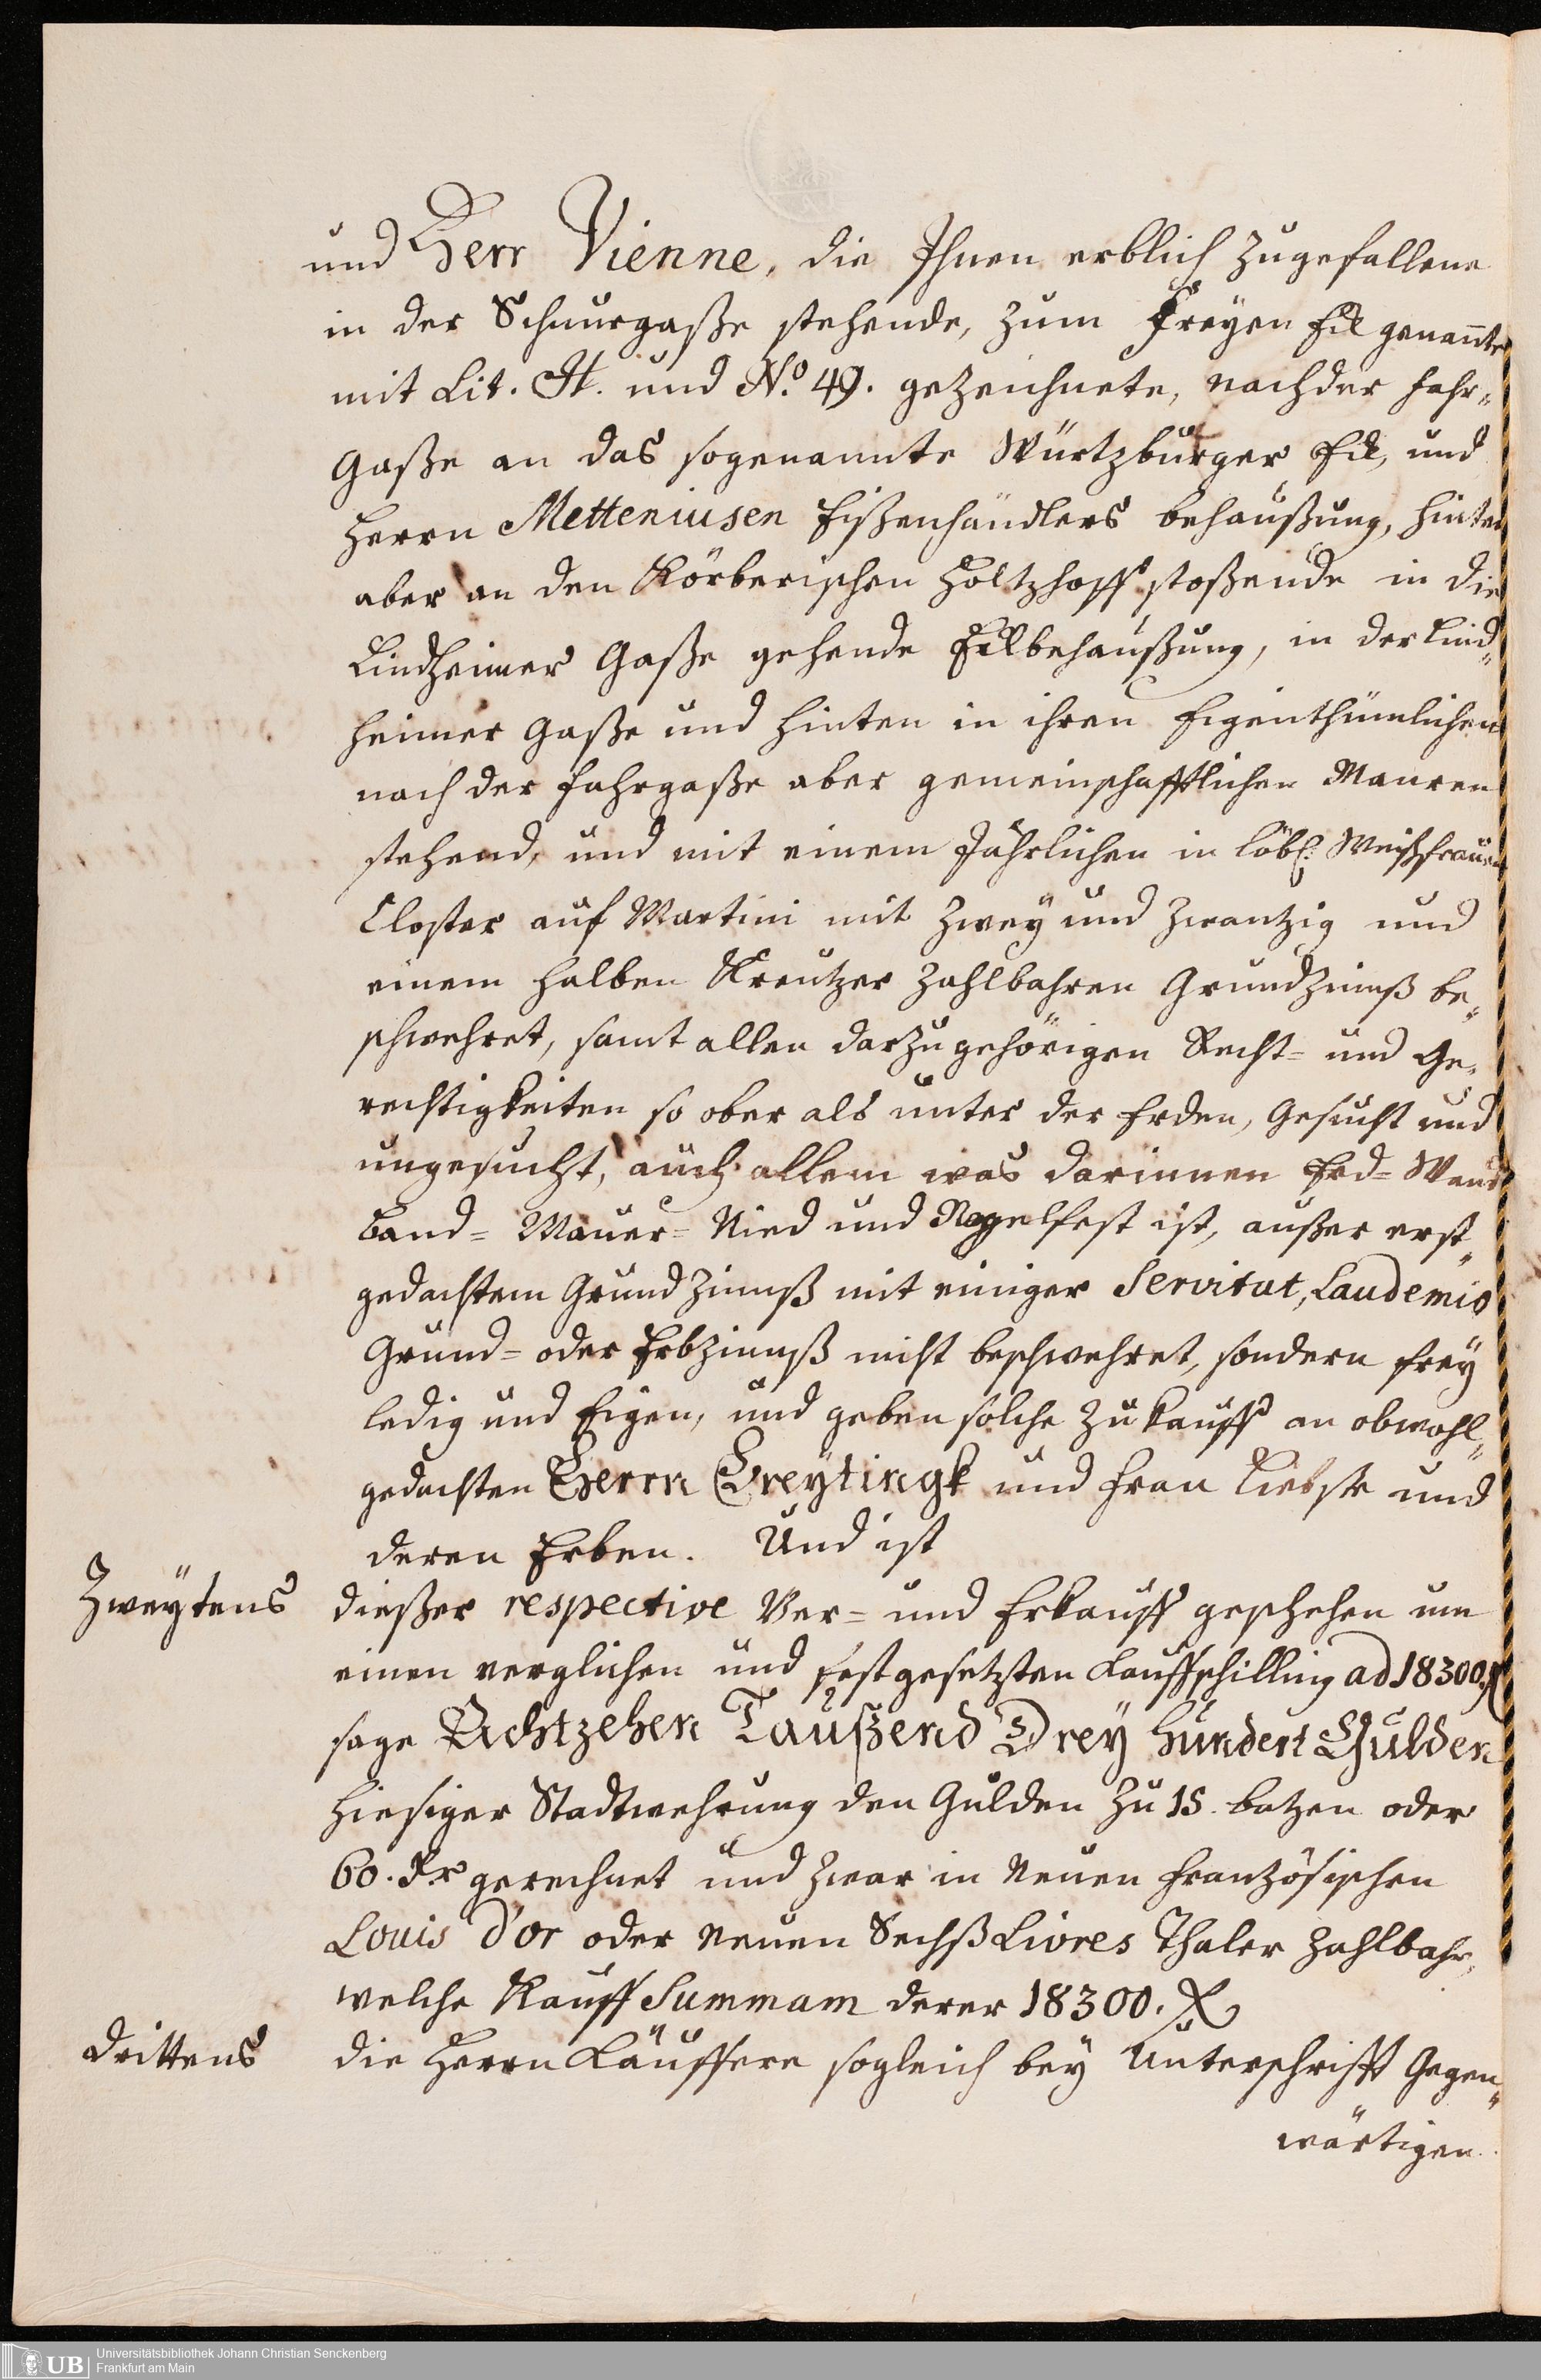 und Herr Vienne, die Ihnen erblich zugefallene
in der Schnurgaße stehende, zum Freyen Eck genannte
mit Lit. H. und No. 49. gezeichnete, nach der Fahr„
Gaße an das sogenannte Würtzburger Eck, und
Herrn Metteniusen Eißenhändlers behaußung, hinten
aber an den Körberischen Holtzhoff stoßende in die
Lindheimer Gaße gehende Eckbehaußung, in der Lind„
heimer Gaße und hinten in ihren Eigenthümlichen
nach der Fahrgaße aber gemeinschafftlichen Mauren
stehend, und mit einem Jährlichen in löbl: Weißfrauen
Closter auf Martini mit Zwey und Zwantzig und
einem halben Kreutzer zahlbahren Grundzinnß be„
schwehret, samt allen darzu gehörigen Recht= und Ge„
rechtigkeiten so ober als unter der Erden, Gesucht und
ungesucht, auch allem was darinnen Erd= Wand
Band= Mauer= Nied und Nagelfest ist, außer erst„
gedachtem Grund Zinnß mit einiger Servitut, Laudemio
Grund= oder Erbzinnß nicht beschwehret, sondern frey
ledig und Eigen, und geben solche zu Kauff an obwohl„
gedachten Herrn Greytingk und Frau Liebste und
deren Erben. Und ist
Zweytens dießer respective Ver= und Erkauff geschehen um
einen verglichen und festgesetzten Kauffschilling ad 18300.f
sage Achtzehen Taußend Drey hundert Gulden
hiesiger Stadtwehrung den Gulden zu 15. batzen oder
60. Kr gerechnet und zwar in Neuen Französischen
Louis d'or oder Neuen Sechß Livres Thaler zahlbahr,
welche Kauff Summam derer 18300. f
Drittens die Herrn Käuffere sogleich bey Unterschrifft Gegen„
wärtigen
UB Universitätsbibliothek Johann Christian Senckenberg
Frankfurt am Main